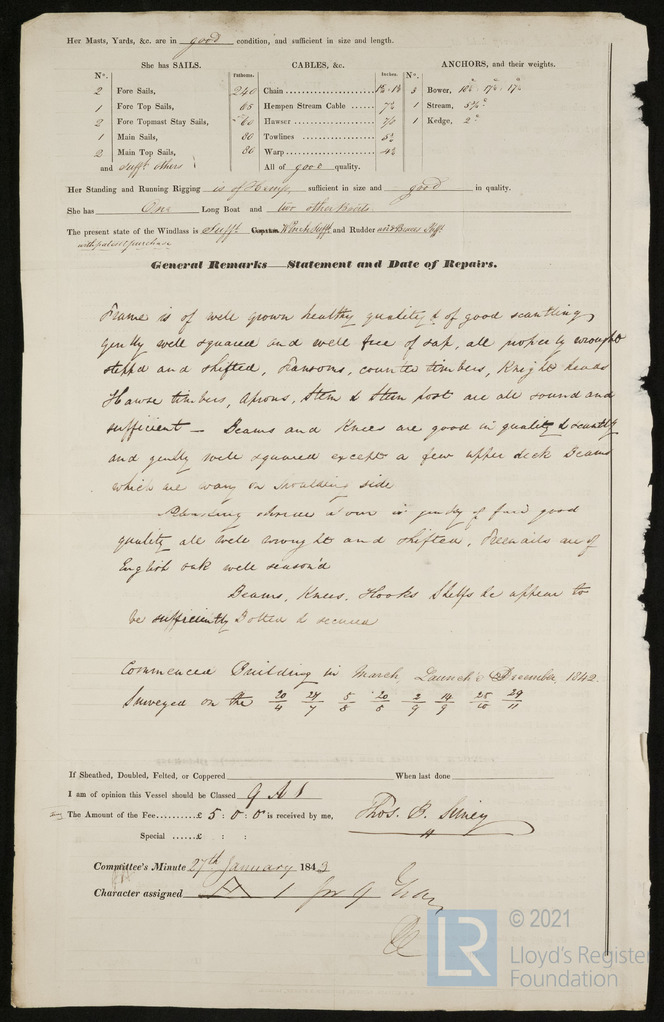 Her Masts, Yards, &c. are in good condition, and sufficient in size and length.
She has SAILS.
CABLES, &c.
ANCHORS, and their weights.
No.
Fathoms.
Inches
No.
2 Fore Sails,
240 Chain
3 Bower,
2 Fore Top Sails,
65 Hempen Stream Cable
1 Stream,
2 Fore Topmast Stay Sails,
60 Hawser
1 Kedge,
1 Main Sails,
80 Towlines
2 Main Top Sails,
80 Warp
and Sufft. others
All of good quality.
Her Standing and Running Rigging is of Hemp, sufficient in size and good in quality.
She has One Long Boat and two other Boats
The present state of the Windlass is Sufft Capstan Winch Sufft and Rudder and Braces Sufft
with patent purchase
General Remarks—Statement and Date of Repairs.
Frame is of well grown healthy quality & of good scantling,
genlly well squared and well free of sap, all properly wrought
stepp'd and shifted, Transoms, counter timbers, Knight heads
Hawse timbers, Aprons, Stem & Stern post are all sound and
sufficient — Beams and Knees are good in quality & scantlg
and genlly well squared except a few upper deck Beams
which are wany on moulding side
Planking inside & out is genlly of fair good
quality all well wrought and shifted, Treenails are of
English oak well season'd
Beams, Knees, Hooks Shelfs &c appear to
be sufficiently Bolted & secured
Commenced Building in March, Launch'd December, 1842.
Surveyed on the 20/4 24/7 5/8 20/8 2/9 14/9 25/10 29/11
If Sheathed, Doubled, Felted, or Coppered When last done
I am of opinion this Vessel should be Classed 9 A 1
The Amount of the Fee £ 5 : 0 : 0 is received by me,
Special £ : :
Committee's Minute 27th January 1843
Character assigned A 1 for 9 Years
© 2021
LR
Lloyd's Register
Foundation